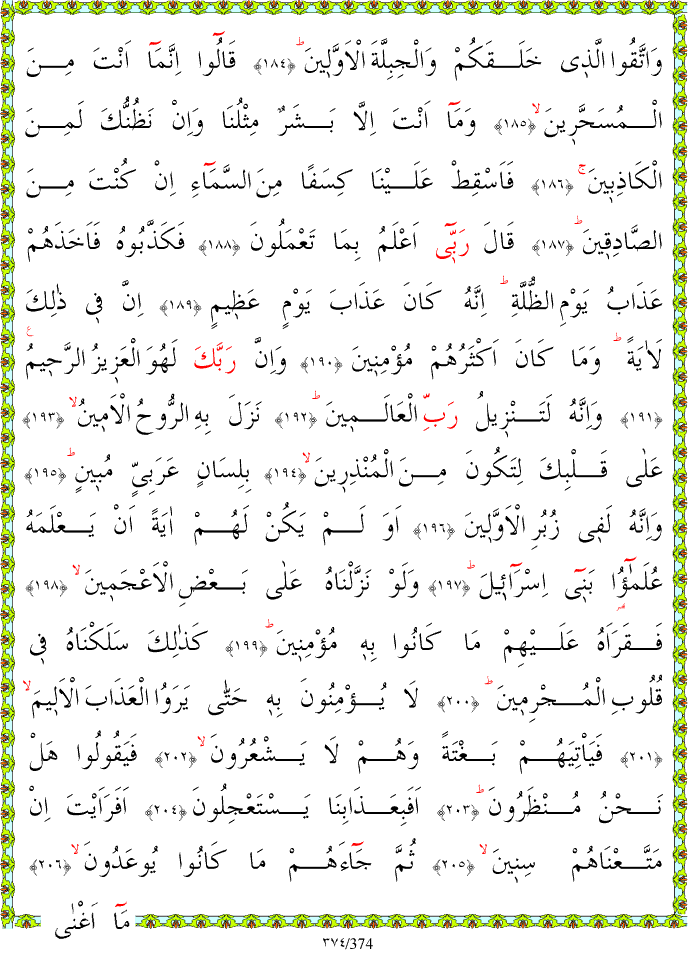 وَاتَّقُوا الَّذ۪ى خَلَـــقَكُمْ وَالْجِبِلَّةَ الْاَوَّل۪ينَۜ ﴿١٨٤﴾ قَالُٓوا اِنَّمَٓا اَنْتَ مِـــنَ
الْـــمُسَحَّر۪ينَۙ ﴿١٨٥﴾ وَمَٓا اَنْتَ اِلَّا بَـــشَرٌ مِثْلُنَا وَاِنْ نَظُنُّكَ لَمِـــنَ
الْكَاذِب۪ينَۚ ﴿١٨٦﴾ فَاَسْقِطْ عَلَـــيْنَا كِسَفًا مِنَ السَّمَٓاءِ اِنْ كُنْتَ مِـــنَ
الصَّادِق۪ينَۜ ﴿١٨٧﴾ قَالَ رَبّ۪ٓى اَعْلَمُ بِمَا تَعْمَلُونَ ﴿١٨٨﴾ فَكَذَّبُوهُ فَاَخَذَهُمْ
عَذَابُ يَوْمِ الظُّلَّةِۜ اِنَّهُ كَانَ عَذَابَ يَوْمٍ عَظ۪يمٍ ﴿١٨٩﴾ اِنَّ ف۪ى ذٰلِكَ
لَاٰيَةًۜ وَمَا كَانَ اَكْثَرُهُمْ مُؤْمِن۪ينَ ﴿١٩٠﴾ وَاِنَّ رَبَّكَ لَهُوَ الْعَز۪يزُ الرَّح۪يمُ ع
﴿١٩١﴾ وَاِنَّهُ لَتَـــنْز۪يلُ رَبِّ الْعَالَـــم۪ينَۜ ﴿١٩٢﴾ نَزَلَ بِهِ الرُّوحُ الْاَم۪ينُۙ ﴿١٩٣﴾
عَلٰى قَـــلْبِكَ لِتَكُونَ مِـــنَ الْمُنْذِر۪ينَۙ ﴿١٩٤﴾ بِلِسَانٍ عَرَبِىٍّ مُب۪ينٍۜ ﴿١٩٥﴾
وَاِنَّهُ لَف۪ى زُبُرِ الْاَوَّل۪ينَ ﴿١٩٦﴾ اَوَ لَـــمْ يَكُنْ لَهُـــمْ اٰيَةً اَنْ يَـــعْلَمَهُ
عُلَمٰٓؤُا بَن۪ٓى اِسْرَٓائ۪لَۜ ﴿١٩٧﴾ وَلَوْ نَزَّلْنَاهُ عَلٰى بَـــعْضِ الْاَعْجَم۪ينَۙ ﴿١٩٨﴾
فَـــقَرَاَهُ عَلَـــيْهِمْ مَا كَانُوا بِه۪ مُؤْمِن۪ينَۜ ﴿١٩٩﴾ كَذٰلِكَ سَلَكْنَاهُ ف۪ى
قُلُوبِ الْمُـــجْرِم۪ينَۜ ﴿٢٠٠﴾ لَا يُـــؤْمِنُونَ بِه۪ حَتّٰى يَرَوُا الْعَذَابَ الْاَل۪يمَۙ
﴿٢٠١﴾ فَيَأْتِيَهُـــمْ بَـــغْتَةً وَهُـــمْ لَا يَـــشْعُرُونَۙ ﴿٢٠٢﴾ فَيَقُولُوا هَلْ
نَـــحْنُ مُـــنْظَرُونَۜ ﴿٢٠٣﴾ اَفَبِعَـــذَابِنَا يَـــسْتَعْجِلُونَ ﴿٢٠٤﴾ اَفَرَاَيْتَ اِنْ
مَتَّـــعْنَاهُمْ سِن۪ينَۙ ﴿٢٠٥﴾ ثُمَّ جَٓاءَهُـــمْ مَا كَانُوا يُوعَدُونَۙ ﴿٢٠٦﴾
مَٓا اَغْنٰى
٣٧٤/374